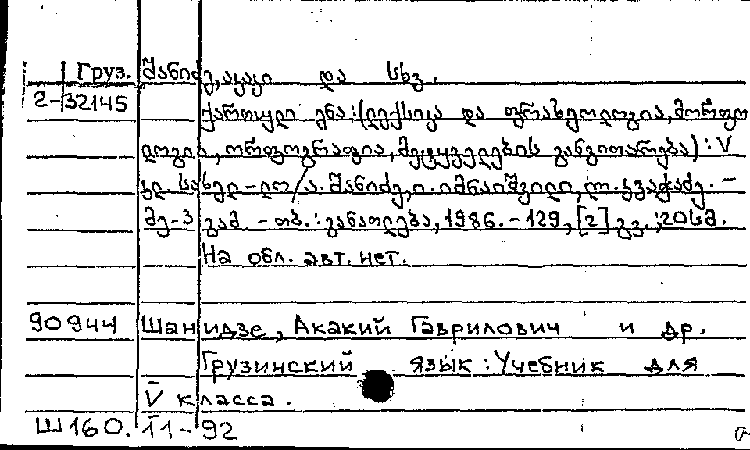 Груз. შანიძე, აკაკი და სხვ.
2-32145 ქართული ენა: (ლექსიკა და ფრაზეოლოგია, მორფო
ლოგია, ორფოგრაფია, მეტყველების განვითარება): V
კლ. სახელ-ლო / ა. შანიძე, ი. იმნაიშვილი, ლ. კვაჭაძე. -
მე-3 გამ. - თბ.: განათლება, 1986. - 129, [2] გვ.; 20სმ.
На обл. авт. нет.
90944 Шанидзе, Акакий Гаврилович и др.
Грузинский язык: Учебник для
V класса.
Ш160. 11-92